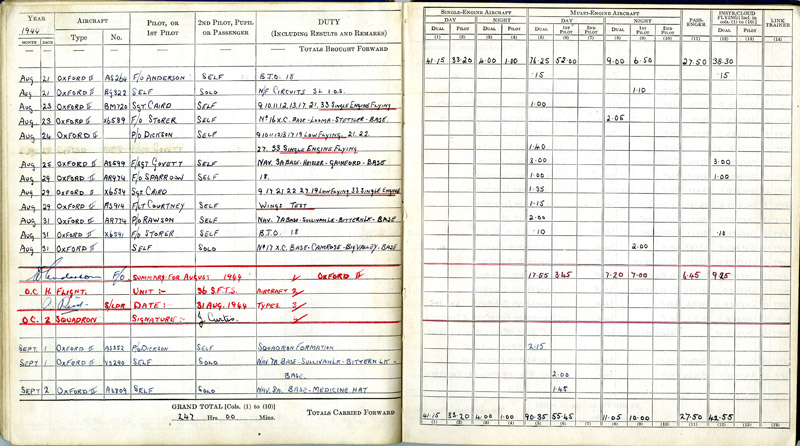 YEAR AIRCRAFT PILOT, OR 1ST PILOT 2ND PILOT, PUPIL OR PASSENGER DUTY (INCLUDING RESULTS AND REMARKS)
1944
MONTH DATE Type No.
TOTALS BROUGHT FORWARD
AUG 21 OXFORD II AS264 F/O ANDERSON SELF B.T.O. 18
AUG 21 OXFORD II SELF SOLO N/F CIRCUITS 3L 1 O.S.
AUG 23 OXFORD II BM720 SGT CAIRD SELF 9,10,11,12,13,17,21,33 SINGLE ENGINE FLYING
AUG 23 OXFORD II X6589 F/O STORER SELF No 16 X.C. BASE-LOOMA-STETTLER-BASE
AUG 24 OXFORD II P/O DICKSON SELF 9,10,11,12,13,17,19 LOW FLYING, 21, 22
27. 33 SINGLE ENGINE FLYING
AUG 25 OXFORD II F/SGT GOVETT SELF NAV. 3A BASE-HEISLER-GAINFORD-BASE
AUG 29 OXFORD II AR974 F/O SPARROW SELF 18.
AUG 29 OXFORD II X6534 SGT CAIRD 9 17 21 22 27, 19 LOW FLYING 33 SINGLE ENGINE
AUG 29 OXFORD II AS914 F/LT COURTNEY SELF WINGS TEST
AUG 31 OXFORD II AR774 P/O RAWSON SELF NAV. 7A BASE-SULLIVAN LK-BITTERN LK-BASE
AUG 31 OXFORD II X6591 F/O STORER SELF B.T.O. 18
AUG 31 OXFORD II SELF SOLO No 17 X.C. BASE-CAMROSE-BIG VALLEY-BASE
F/O SUMMARY FOR AUGUST 1944 OXFORD II
O.C. H FLIGHT. UNIT:- 36 S.F.T.S. AIRCRAFT 2
S/LDR DATE:- 31 AUG. 1944 TYPES. 3
O.C. 2 SQUADRON SIGNATURE:- J Curtis.
SEPT. 1 OXFORD II AS352 P/O DICKSON SELF SQUADRON FORMATION
SEPT 1 OXFORD II V3290 SELF SOLO NAV. 7A BASE-SULLIVAN LK-BITTERN LK-
BASE.
SEPT 2 OXFORD II AS809 SELF SOLO NAV. 8A. BASE-MEDICINE HAT
GRAND TOTAL [Cols. (1) to (10)]
247 Hrs. 00 Mins.
TOTALS CARRIED FORWARD
SINGLE-ENGINE AIRCRAFT MULTI-ENGINE AIRCRAFT PASSENGER INSTR/CLOUD FLYING [Incl. in cols. (1) to (10)] LINK TRAINER
DAY NIGHT DAY NIGHT
DUAL PILOT DUAL PILOT DUAL 1ST PILOT 2ND PILOT DUAL 1ST PILOT 2ND PILOT DUAL PILOT
(1) (2) (3) (4) (5) (6) (7) (8) (9) (10) (11) (12) (13) (14)
41.15 33.20 4.00 1.10 76.25 52.00 9.00 6.50 27.50 38.30
.15 .15
1.10
1.00
2.05
1.40
2.00 2.00
1.00 1.00
1.35
1.15
2.00
.10 .10
2.00
17.55 3.45 7.20 7.00 6.45 9.25
2.15
2.00
1.45
41.15 33.20 4.00 1.00 90.35 55.45 11.05 10.00 27.50 42.55
(1) (2) (3) (4) (5) (6) (7) (8) (9) (10) (11) (12) (13) (14)